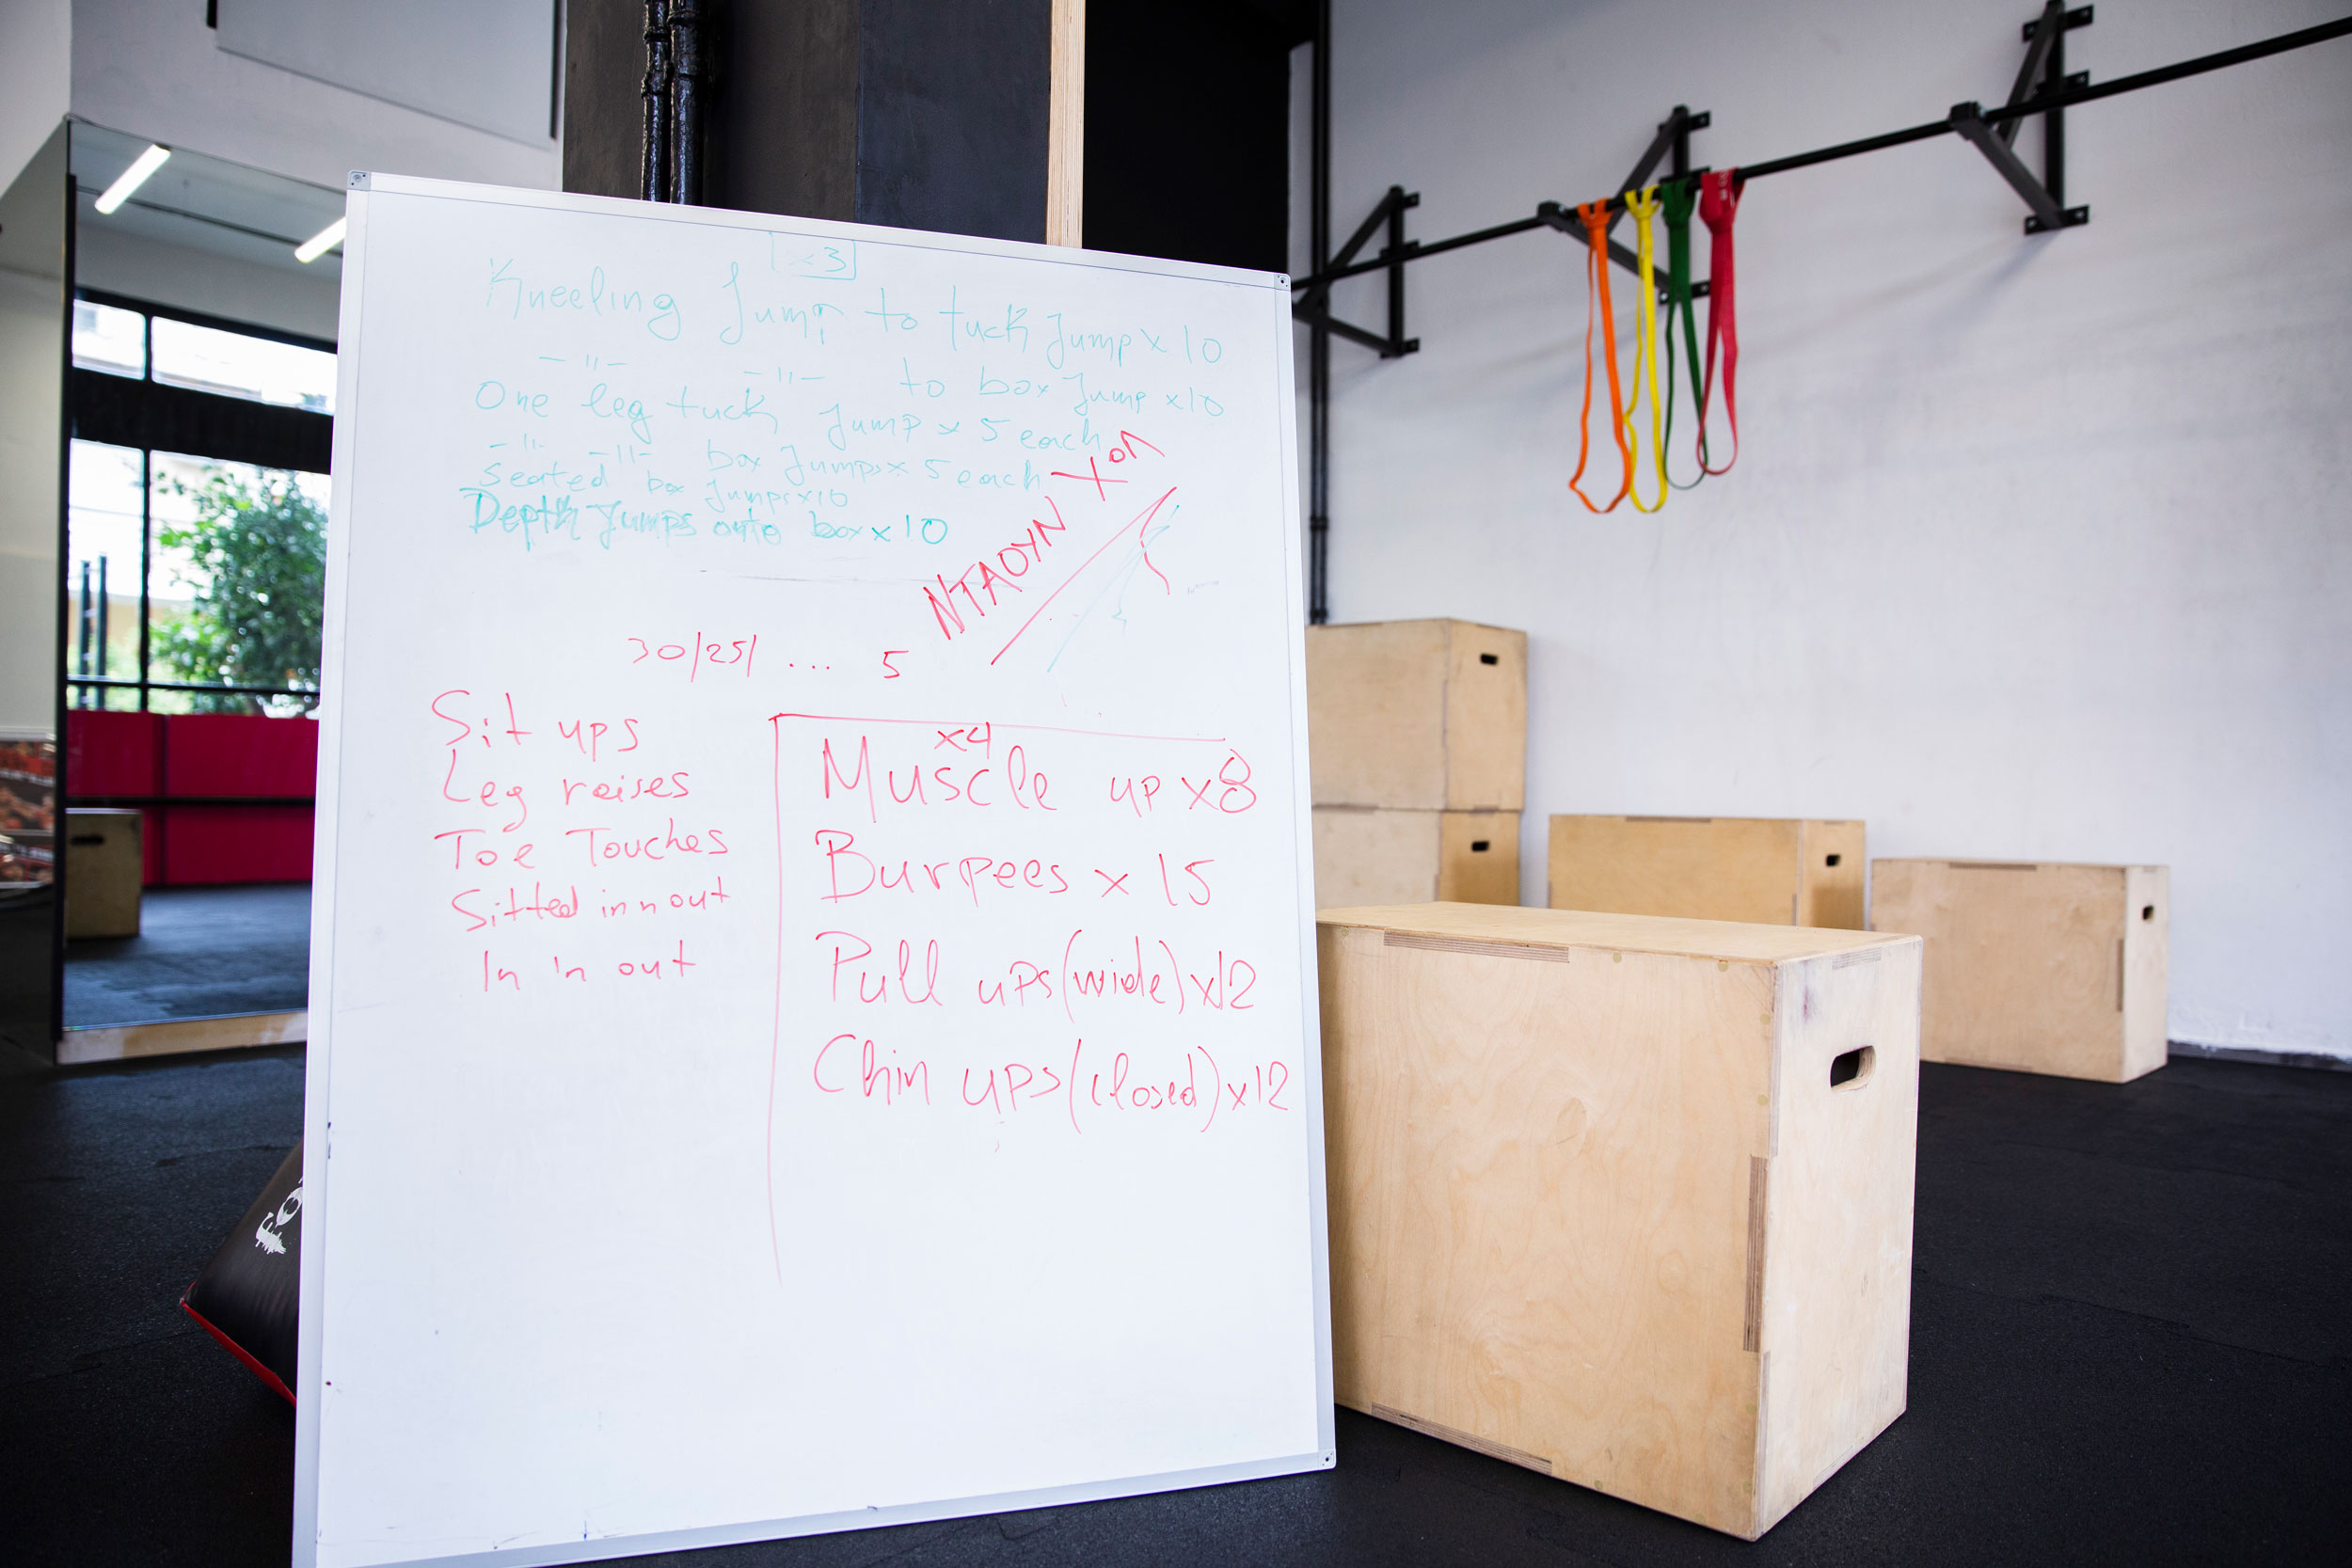 x3
Kneeling Jump to tuck Jump x 10
-"- -"- to box Jump x10
One leg tuck Jump x 5 each
-"- -"- box Jumps x 5 each
Seated box Jumps x10
Depth Jumps onto box x 10
ΝΤΑΟΥΝ
30/25/ ... 5
Sit ups
Leg raises
Toe Touches
Sitted in n out
In 'n out
x4
Muscle up x8
Burpees x 15
Pull ups (wide) x12
Chin ups (closed) x12